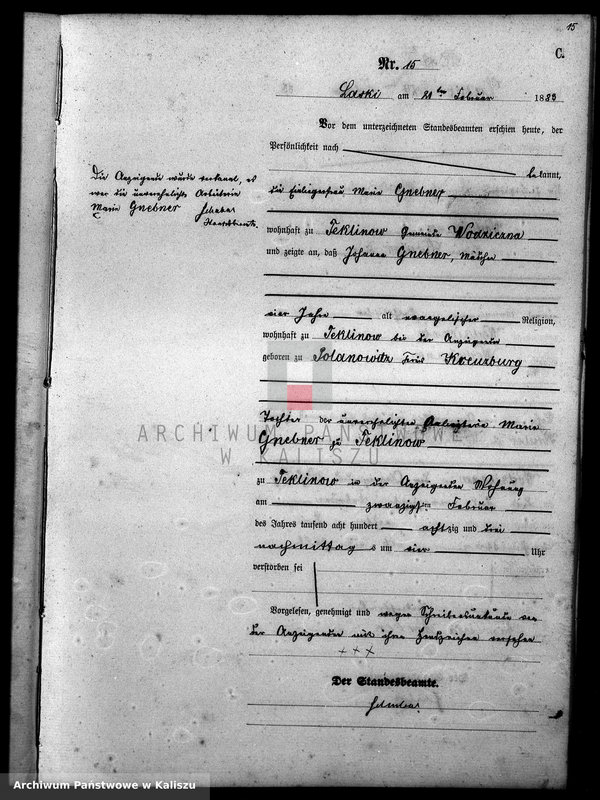 15
C.
Nr. 15
Laski am 21ten Februar 1883
Vor dem unterzeichneten Standesbeamten erschien heute, der
Persönlichkeit nach
bekannt,
die Einliegerfrau Marie Gnebner
wohnhaft zu Teklinow Gemeinde Wodziczna
und zeigte an, daß Johanna Gnebner,
vier Jahre alt evangelischer Religion,
wohnhaft zu Teklinow bei der Anzeigenden
geboren zu Polanowitz Kreis Kreuzburg
Tochter der unverehelichten Arbeiterin Marie
Gnebner zu Teklinow
zu Teklinow in der Anzeigenden Wohnung
am zwanzigsten Februar
des Jahres tausend acht hundert achtzig und drei
nachmittags um vier Uhr
verstorben sei
Vorgelesen, genehmigt und wegen Schreibensunkunde von
der Anzeigenden mit ihren Handzeichen versehen
+++
Der Standesbeamte.
Die Anzeigende wurde erkannt, es
war die unverehelichte Arbeiterin
Marie Gnebner
Standesbeamte.
ARCHIWUM PAŃSTWOWE
W KALISZU
Archiwum Państwowe w Kaliszu